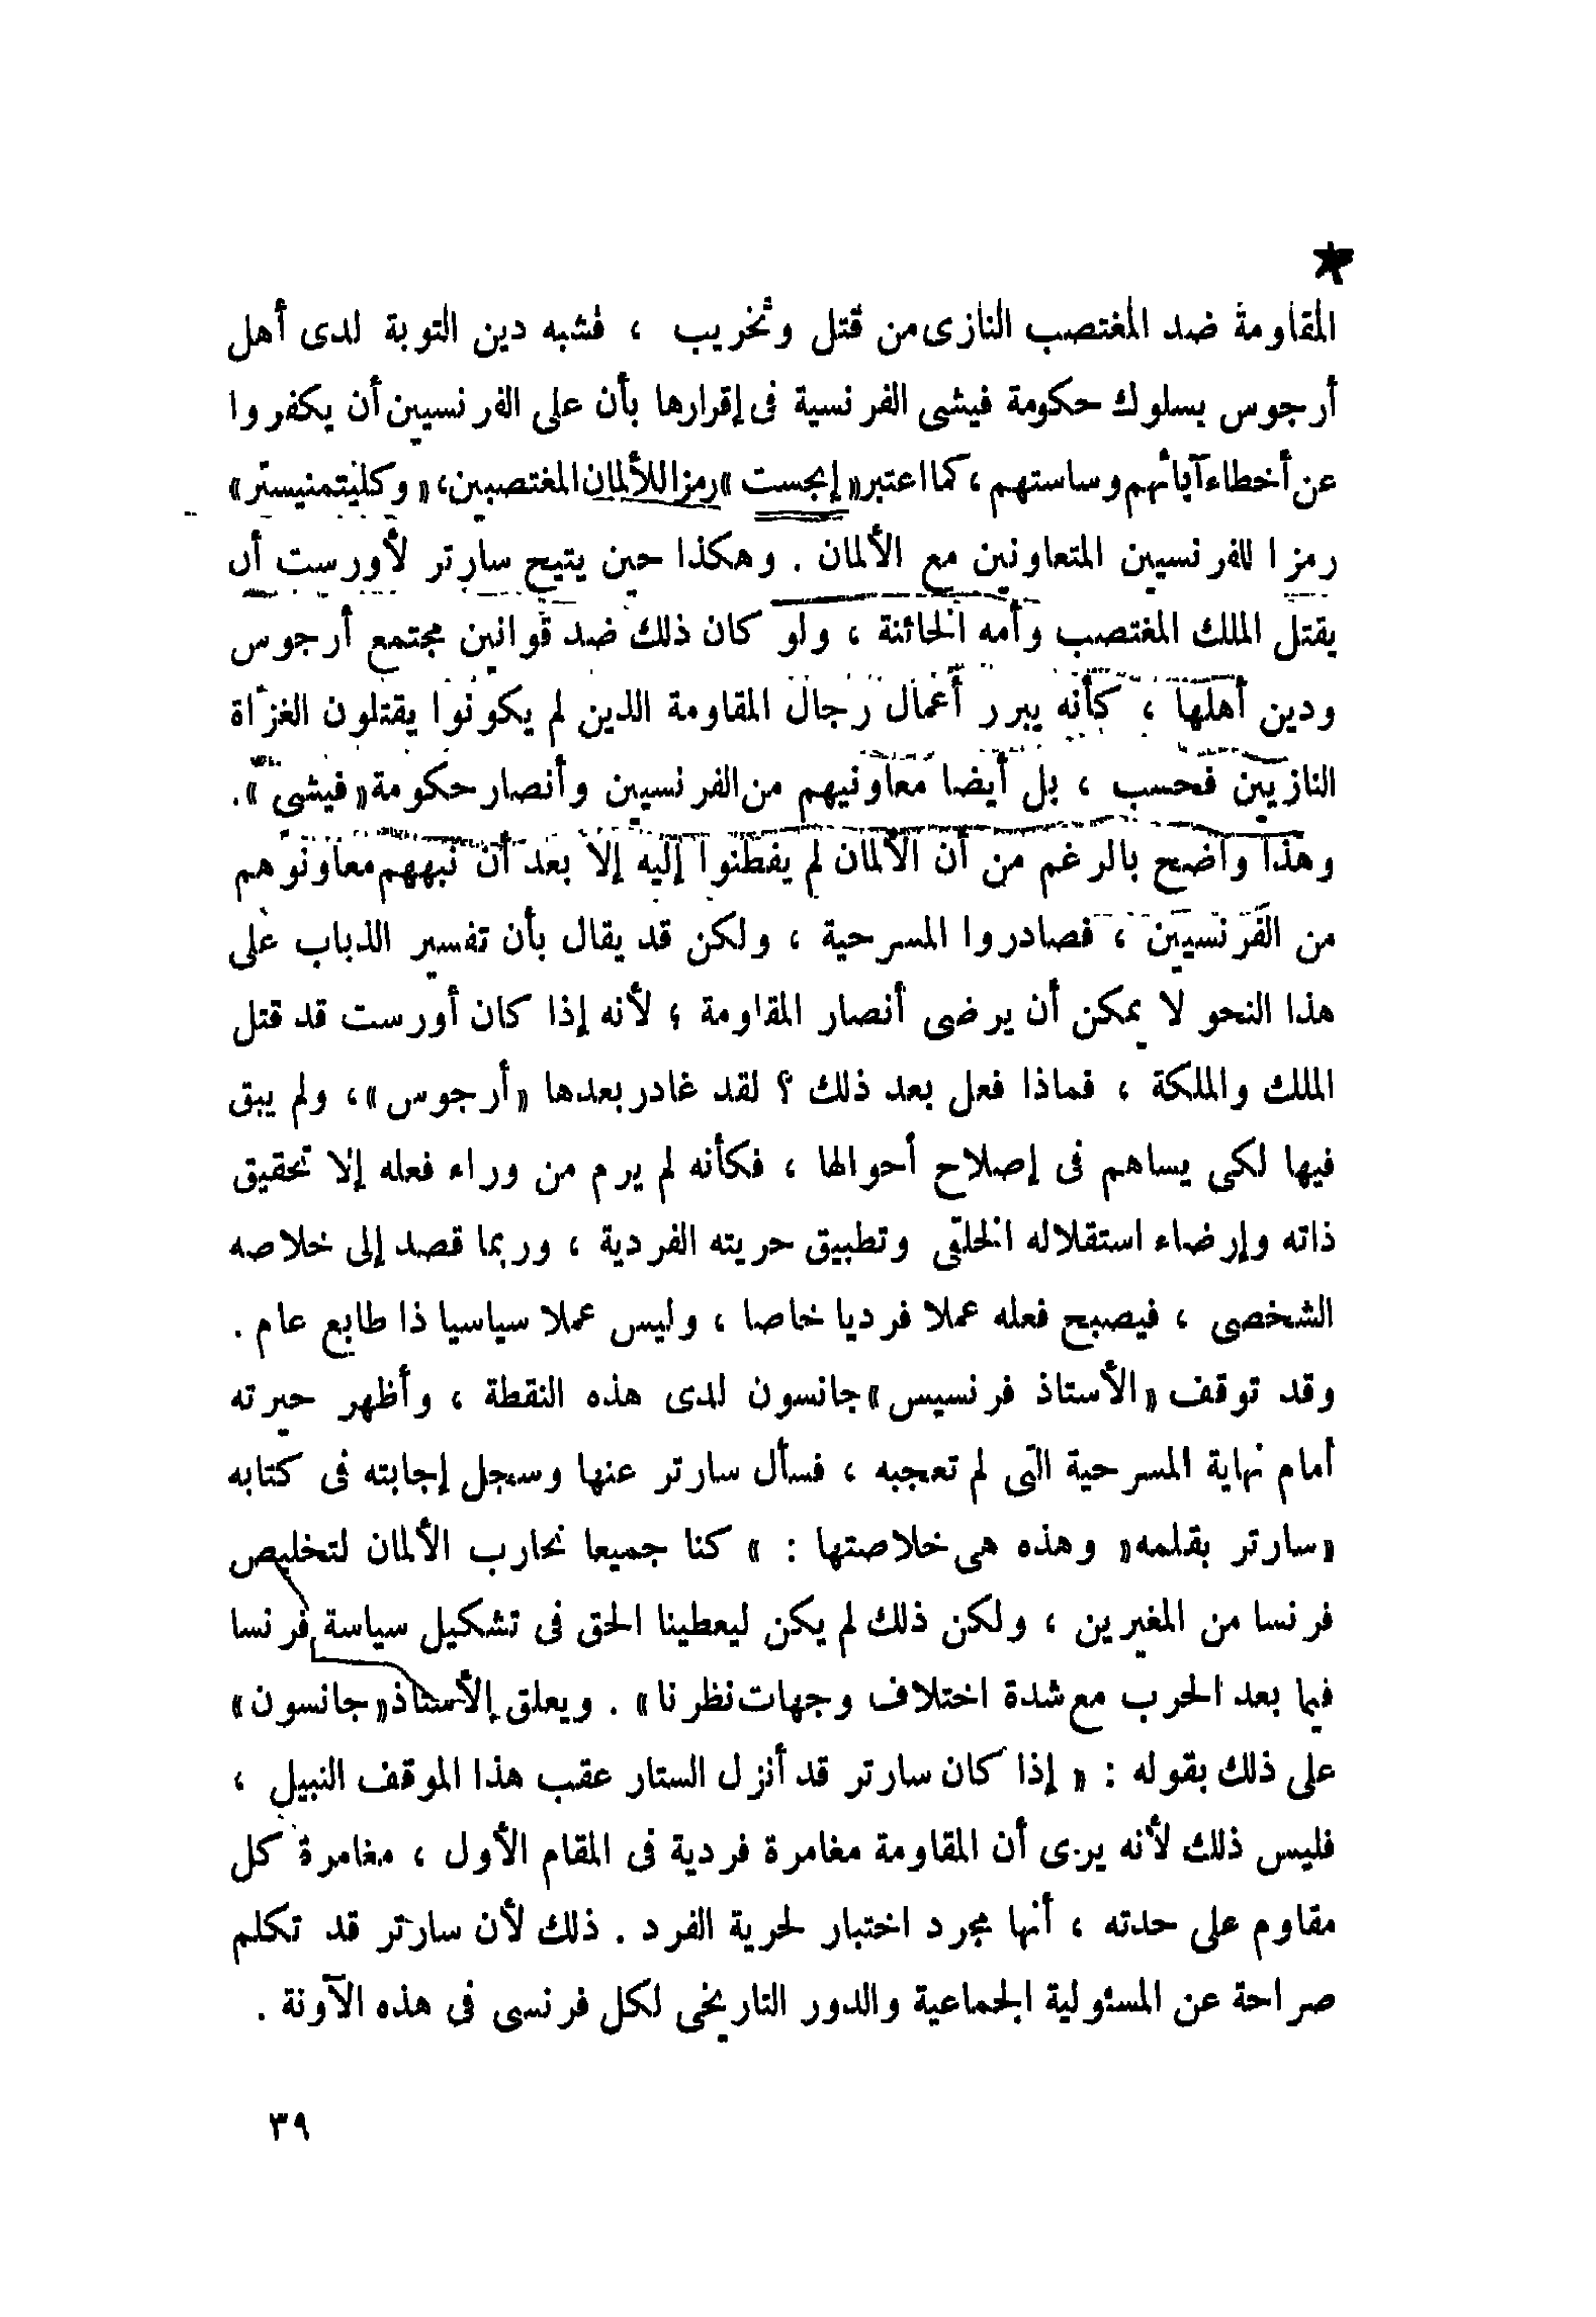 المقاومة ضد المغتصب النازى من قتل وتخريب ، فشبه دين التوبة لدى أهل
أرجوس بسلوك حكومة فيشى الفرنسية فى إقرارها بأن على الفرنسيين أن يكفروا
عن أخطاء آبائهم وساستهم ، كما اعتبر « إيجست » رمزا للألمان المغتصبين ، « وكليتمنيستر »
رمزا للفرنسيين المتعاونين مع الألمان . وهكذا حين يتيح سارتر لأورست أن
يقتل الملك المغتصب وأمه الخائنة ، ولو كان ذلك ضد قوانين مجتمع أرجوس
ودين أهلها ، كأنه يبرر أعمال رجال المقاومة الذين لم يكونوا يقتلون الغزاة
النازيين فحسب ، بل أيضا معاونيهم من الفرنسيين وأنصار حكومة « فيشى » .
وهذا واضح بالرغم من أن الألمان لم يفطنوا إليه إلا بعد أن نبههم معاونوهم
من الفرنسيين ، فصادروا المسرحية ، ولكن قد يقال بأن تفسير الذباب على
هذا النحو لا يمكن أن يرضى أنصار المقاومة ؛ لأنه إذا كان أورست قد قتل
الملك والملكة ، فماذا فعل بعد ذلك ؟ لقد غادر بعدها « أرجوس » ، ولم يبق
فيها لكى يساهم فى إصلاح أحوالها ، فكأنه لم يرم من وراء فعله إلا تحقيق
ذاته وإرضاء استقلاله الخلقى وتطبيق حريته الفردية ، وربما قصد إلى خلاصه
الشخصى ، فيصبح فعله عملا فرديا خاصا ، وليس عملا سياسيا ذا طابع عام .
وقد توقف « الأستاذ فرنسيس » جانسون لدى هذه النقطة ، وأظهر حيرته
أمام نهاية المسرحية التى لم تعجبه ، فسأل سارتر عنها وسجل إجابته فى كتابه
« سارتر بقلمه « وهذه هى خلاصتها : » كنا جميعا نحارب الألمان لتخليص
فرنسا من المغيرين ، ولكن ذلك لم يكن ليعطينا الحق فى تشكيل سياسة فرنسا
فيما بعد الحرب مع شدة اختلاف وجهات نظرنا » . ويعلق الأستاذ « جانسون »
على ذلك بقوله : « إذا كان سارتر قد أنزل الستار عقب هذا الموقف النبيل ،
فليس ذلك لأنه يرى أن المقاومة مغامرة فردية فى المقام الأول ، مغامرة كل
مقاوم على حدته ، أنها مجرد اختبار لحرية الفرد . ذلك لأن سارتر قد تكلم
صراحة عن المسئولية الجماعية والدور التاريخى لكل فرنسى فى هذه الآونة .
٣٩